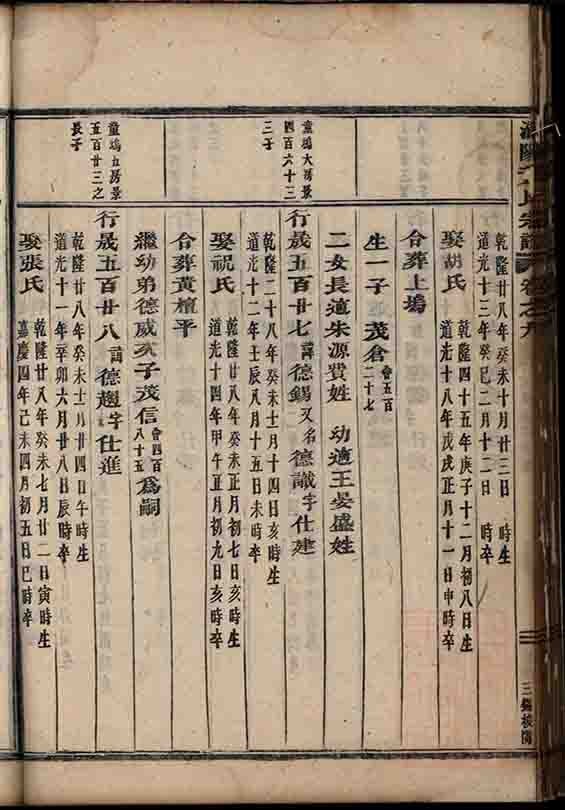 宗譜 卷之九
乾隆廿八年癸未十月廿三日 時生
道光十三年癸巳二月十二日 時卒
娶胡氏 乾隆四十五年庚子十二月初八日生
道光十八年戊戌正月十一日申時卒
合葬上塢
生一子 茂倉 會五百
二十七
二女長適朱源貴姓 幼適王晏盛姓
童塢大房景
四百六十三
三子
行晟五百廿七 諱德錫又名德識字仕建
乾隆二十八年癸未十一月十四日亥時生
道光十二年壬辰八月十五日未時卒
娶祝氏 乾隆廿八年癸未正月初七日亥時生
道光十四年甲午正月初九日亥時卒
合葬黃檀平
繼幼弟德威次子茂信 會四百
八十五 為嗣
童塢五房景
五百廿三之
長子
行晟五百廿八 諱德趨字仕進
乾隆廿八年癸未十二月廿四日午時生
道光十一年辛卯六月廿八日辰時卒
娶張氏 乾隆廿八年癸未七月廿二日寅時生
嘉慶四年己未四月初五日巳時卒